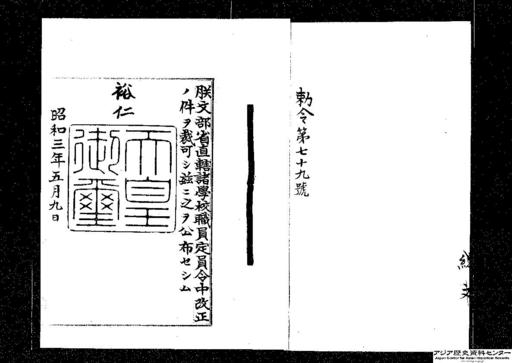 勅令第七十九號
朕文部省直轄諸學校職員定員令中改正
ノ件ヲ裁可シ茲ニ之ヲ公布セシム
裕仁
天皇御璽
昭和三年五月九日
アジア歴史資料センター
Japan Center for Asian Historical Records